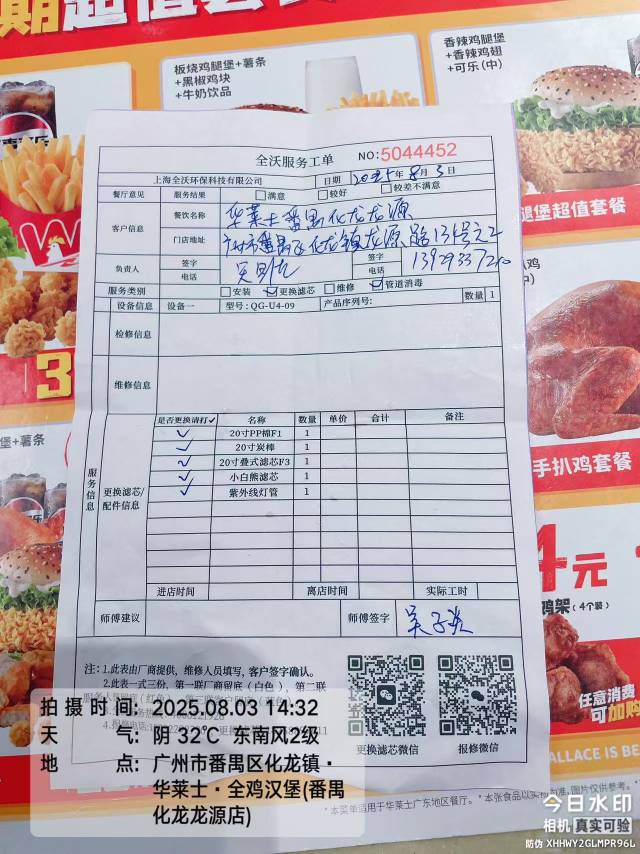 期超值套餐
板烧鸡腿堡+薯条
+黑椒鸡块
+牛奶饮品
香辣鸡腿堡
+香辣鸡翅
+可乐(中)
全沃服务工单 NO:5044452
上海全沃环保科技有限公司 日期 2025年8月3日
餐厅意见 服务结果 满意 较好 较差不满意
客户信息 餐饮名称 华莱士番禺化龙龙源
门店地址 广州市番禺区化龙镇龙源路134号之2
负责人 签字 签字
电话 电话 13929337210
服务类别 安装 更换滤芯 维修 管道消毒
设备信息 设备一 型号:QG-U4-09 产品序列号: 数量 1
检修信息
维修信息
服务信息
更换滤芯/配件信息
是否更换请打✓ 名称 数量 单价 合计 备注
✓ 20寸PP棉F1 1
✓ 20寸炭棒 1
✓ 20寸叠式滤芯F3 1
✓ 小白熊滤芯 1
✓ 紫外线灯管 1
进店时间 离店时间 实际工时
师傅建议 师傅签字
注:1.此表由厂商提供,维修人员填写,客户签字确认。
2.此表一式三份,第一联厂商留底(白色),第二联
更换滤芯微信 报修微信
腿堡超值套餐
手扒鸡套餐
4元
鸡架(4个装)
任意消费
可加购
堡+薯条
WALLACE IS BE
*本菜单适用于华莱士广东地区餐厅。 *本张食品以实物为准,图片仅供参考。
拍摄时间: 2025.08.03 14:32
天气: 阴 32℃ 东南风2级
地点: 广州市番禺区化龙镇·
华莱士·全鸡汉堡(番禺
化龙龙源店)
今日水印
相机 真实可验
防伪 XHHWY2GLMPR96L